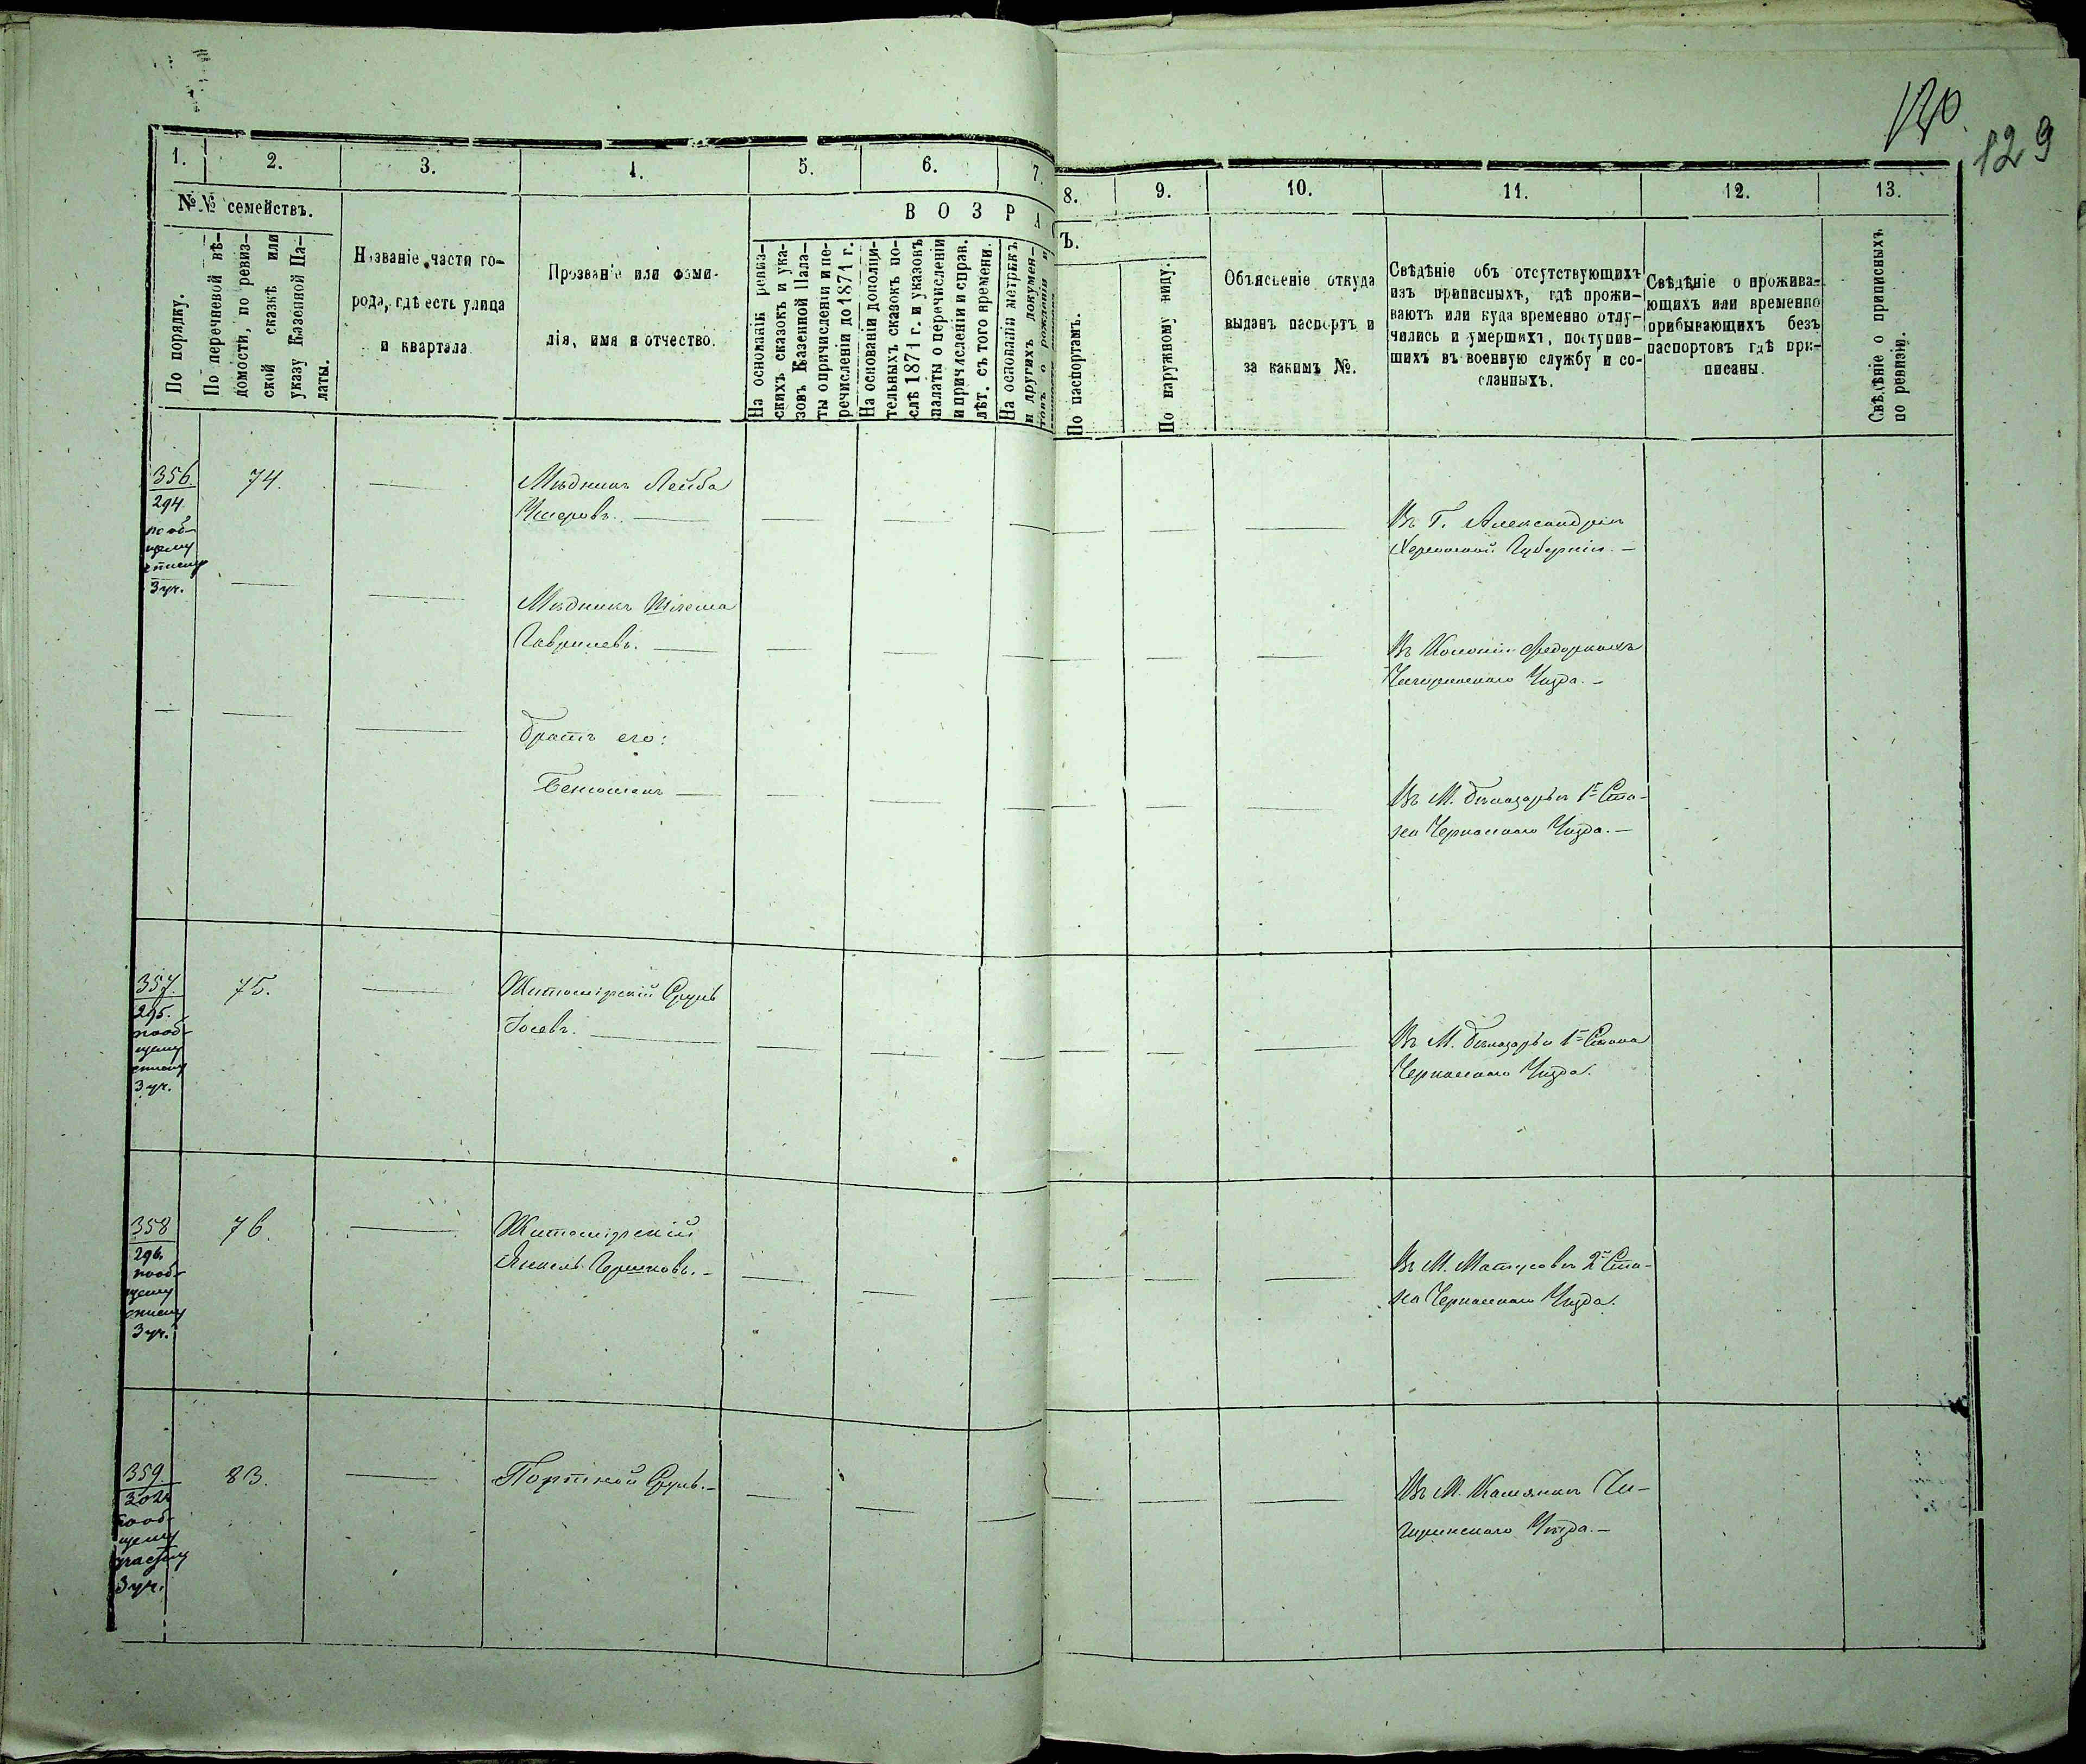 120
129
1.
2.
3.
4.
5.
6.
7.
8.
9.
10.
11.
12.
13.
№№ семействъ.
По порядку.
По перечневой вѣ-
домости, по ревиз-
ской сказкѣ или
указу Казенной Па-
латы.
Названіе части го-
рода, гдѣ есть улица
и квартала
Прозваніе или фами-
лія, имя и отчество.
ВОЗРА
Ъ.
На основаніи ревиз-
скихъ сказокъ и ука-
зовъ Казенной Пала-
ты о причисленіи и пе-
речисленіи до 1871 г.
На основаніи дополни-
тельныхъ сказокъ по-
слѣ 1871 г. и указокъ
палаты о перечисленіи
и причисленіи и справ.
лѣт. съ того времени.
На основаніи метрикъ
и другихъ докумен-
товъ о рожденіи и
По паспортамъ.
По наружному виду.
Объясненіе откуда
выданъ паспортъ и
за какимъ №.
Свѣдѣніе объ отсутствующихъ
изъ приписныхъ, гдѣ прожи-
ваютъ или куда временно отлу-
чились и умершихъ, поступив-
шихъ въ военную службу и со-
сланныхъ.
Свѣдѣніе о прожива-
ющихъ или временно
прибывающихъ безъ
паспортовъ гдѣ при-
писаны.
Свѣдѣніе о приписныхъ
по ревизіи.
356.
294
по об-
щему
списку
3 уч.
74.
Мѣдникъ Лейба
Въ Г. Александріи
Херсонской Губерніи. —
Мѣдникъ
Гавриловъ.
Въ Колоніи
Чигиринского Уѣзда. —
братъ его:
Въ М. Бѣлозорьи 1го Ста-
на Черкасского Уѣзда. —
357.
295.
по об-
щему
списку
3 уч.
75.
Житомірскій Сруль
Іосевъ.
Въ М. Бѣлозорьи 1го Стана
Черкасского Уѣзда.
358
296.
по об-
щему
списку
3 уч.
76.
Житомірскій
Янкель Гершковъ. —
Въ М. Матусовѣ 2го Ста-
на Черкасского Уѣзда.
359.
302
по об-
щему
3 уч.
83.
Портной Сруль. —
Въ М. Камянкѣ Чи-
гиринского Уѣзда. —